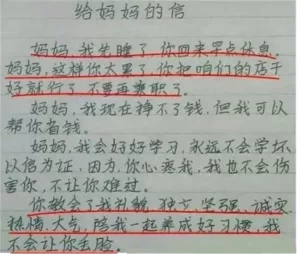 给妈妈的信
妈妈,我先睡了,你回来早点休息,
妈妈,这样你太累了,你把咱们的店干
好就行了,不要再兼职了.
妈妈,我现在挣不了钱,但我可以
帮你省钱。
妈妈,我会好好学习,永远不会学坏
以信为证,因为,你心疼我,我也不会伤
害你,不让你难过。
你教会了我礼貌、独立、坚强、诚实
热情、大气,陪我一起养成好习惯,我
不会让你丢脸。